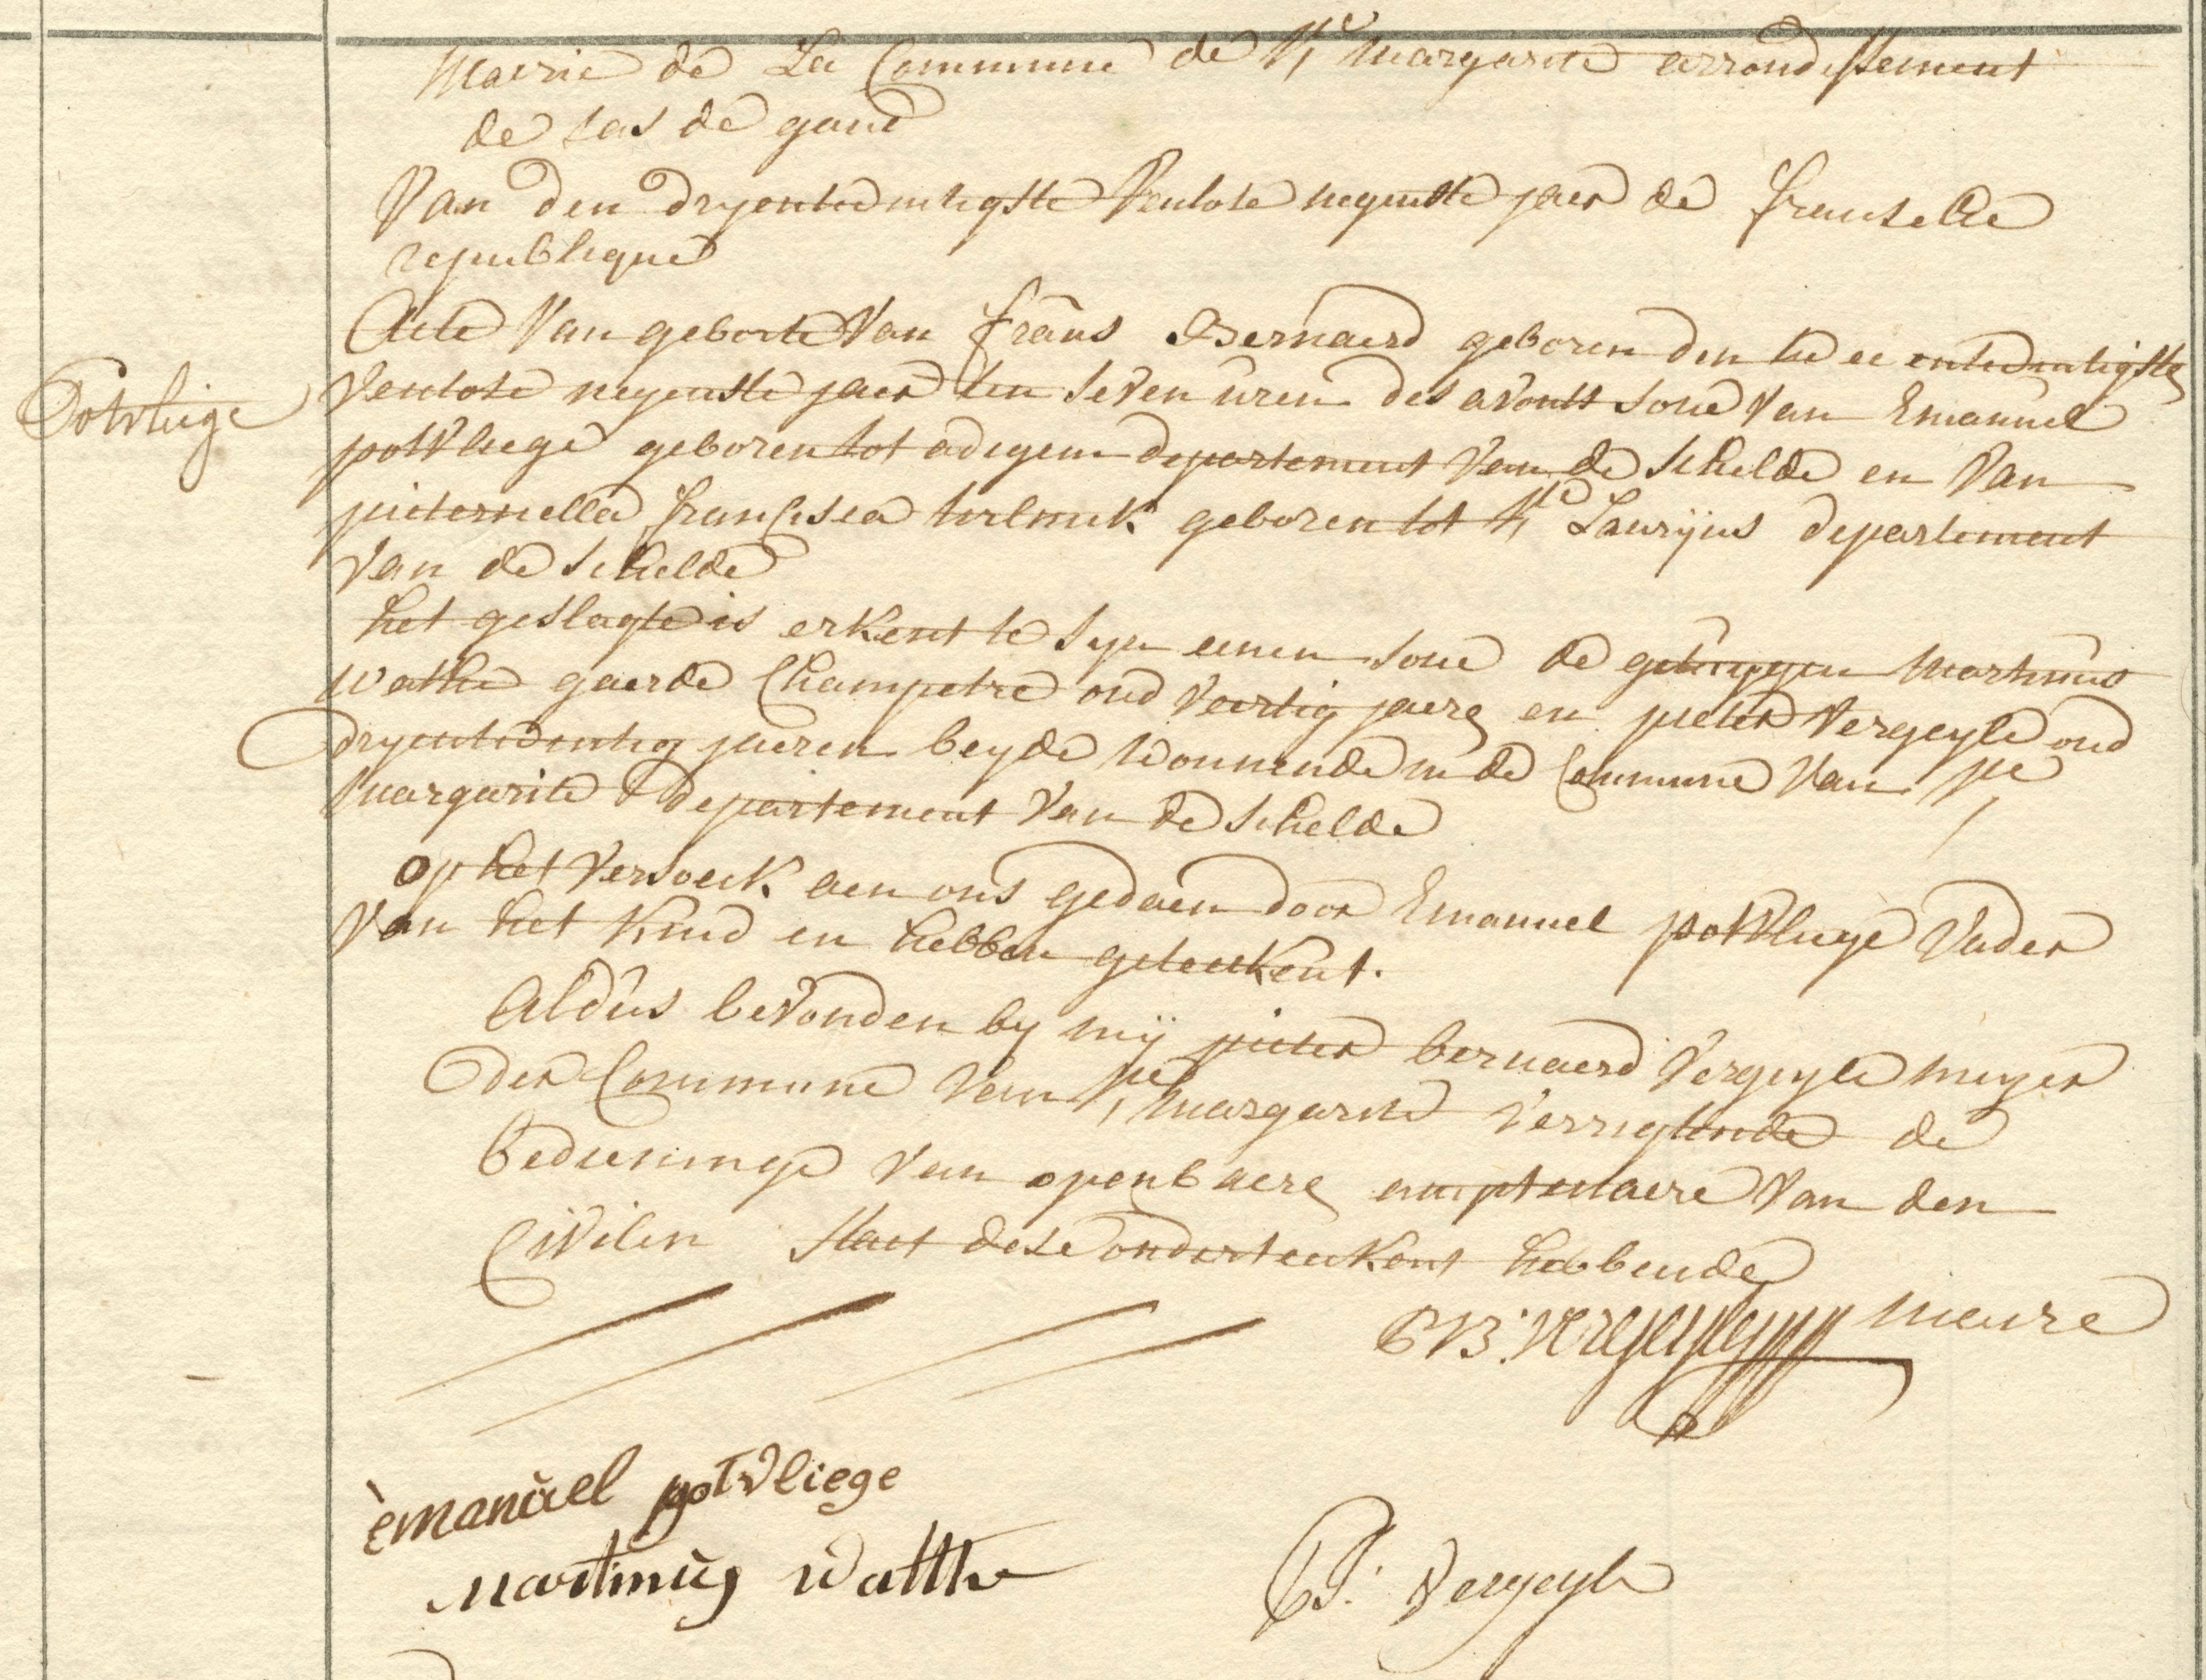 Mairie de La Commune de Ste margarite arrondissement
de sas de gand
Van den dryentwintigste Ventose negenste jaer de fransche
republique
Potvliege
Acte Van geborte Van frans Bernaerd geboren den tweeentwintigste
Ventose negenste jaer ten seven uren des avonts sone Van Emanuel
potvliege geboren tot adegem departement Van de schelde en Van
pieternella francisca geboren tot Ste Laurijns departement
Van de schelde
het geslagte is erkent te syn eenen sone de getuygen Martinus
Watthe gaerde Champetre oud veertig jaere en pieter Vergeyle oud
dryentwintig jaeren beyde woonende in de Commune Van Ste
margarite departement Van de schelde
op het versoeck aen ons gedaen door Emanuel potvliege Vader
Van het kind en hebben geteekent.
Aldus bevonden by mij pieter bernaerd Vergeyle meyer
der Commune Van Ste margarite verrigtende de
bedieninge van openbaere amptenaere Van den
Civilen staet dese onderteekent hebbende
PB: Vergeyle meire
emanuel potvliege
martinus Watthe
P: Vergeyle